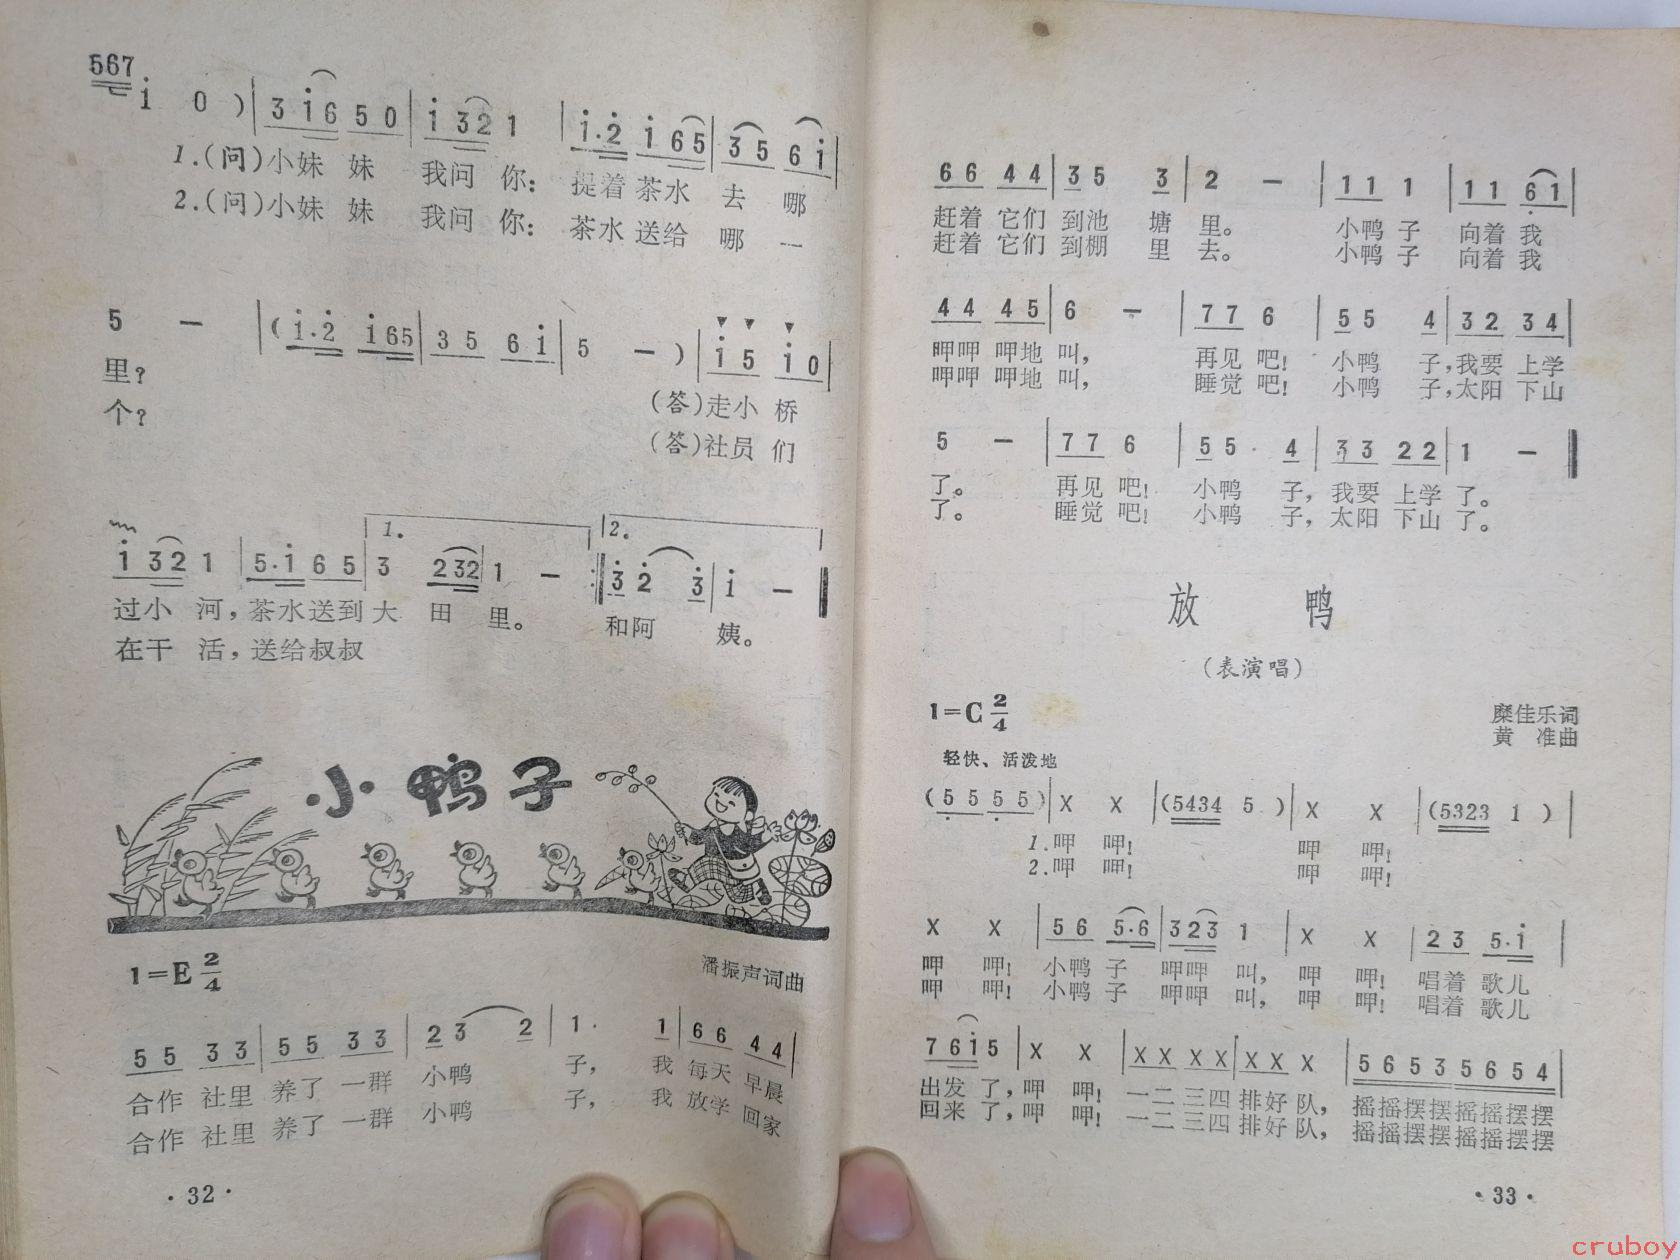 567
i 0 ) 3 i 6 5 0 i 3 2 1 i · 2 i 6 5 3 5 6 i
1.(问)小妹 妹 我问 你: 提着 茶水 去 哪
2.(问)小妹 妹 我问 你: 茶水 送给 哪 一
5 — ( i · 2 i 6 5 3 5 6 i 5 — ) i 5 i 0
里? (答)走小 桥
个? (答)社员 们
1. 2.
i 3 2 1 5 · i 6 5 3 2 3 2 1 — 3 2 3 i —
过小 河, 茶水送到 大 田 里。 和阿 姨。
在干 活, 送给叔叔
小鸭子
1=E 2/4 潘振声词曲
5 5 3 3 5 5 3 3 2 3 2 1 · 1 6 6 4 4
合作 社里 养了 一群 小鸭 子, 我 每天 早晨
合作 社里 养了 一群 小鸭 子, 我 放学 回家
· 32 ·
6 6 4 4 3 5 3 2 — 1 1 1 1 1 6 1
赶着 它们 到池 塘 里。 小鸭 子 向着 我
赶着 它们 到棚 里 去。 小鸭 子 向着 我
4 4 4 5 6 — 7 7 6 5 5 4 3 2 3 4
呷呷 呷地 叫, 再见 吧! 小鸭 子,我要 上学
呷呷 呷地 叫, 睡觉 吧! 小鸭 子,太阳 下山
5 — 7 7 6 5 5 4 3 3 2 2 1 —
了。 再见 吧! 小鸭 子, 我要 上学 了。
了。 睡觉 吧! 小鸭 子, 太阳 下山 了。
放 鸭
(表演唱)
1=C 2/4 糜佳乐词
黄 准曲
轻快、活泼地
(5 5 5 5) X X (5434 5 ) X X (5323 1 )
1.呷 呷! 呷 呷!
2.呷 呷! 呷 呷!
X X 5 6 5·6 3 2 3 1 X X 2 3 5·i
呷 呷! 小鸭 子 呷呷 叫, 呷 呷! 唱着 歌儿
呷 呷! 小鸭 子 呷呷 叫, 呷 呷! 唱着 歌儿
7 6 i 5 X X X X X X X X X 5 6 5 3 5 6 5 4
出发 了,呷 呷! 一二 三四 排好 队, 摇摇摆摆摇摇摆摆
回来 了,呷 呷! 一二 三四 排好 队, 摇摇摆摆摇摇摆摆
· 33 ·
cruboy